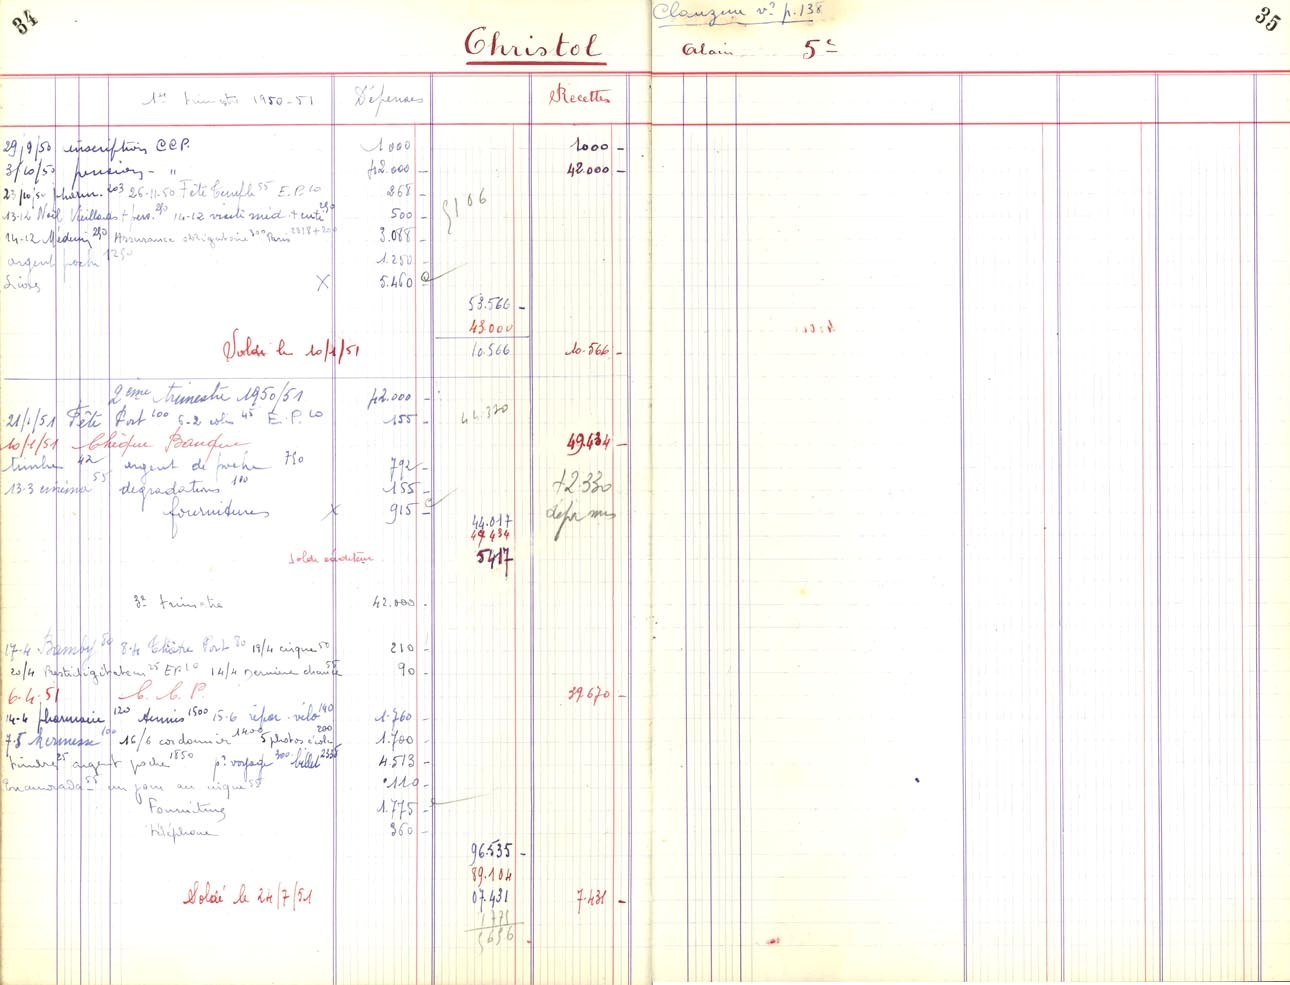 34
Clauzun vº p.138
35
Christol
Alain 5e
1er trimestre 1950-51 Dépenses Recettes
29/9/50 inscription CCP. 1000 1000 -
3/10/50 pension - " 42.000 - 42.000 -
23/10/50 pharm. 203 26-11-50 Fête Benef. 55 E.P. 10 268 -
13-12 Noël Vieillards + pers. 14-12 visite méd. + 500 - 5106
14-12 Médecin 250 Assurance obligatoire 300 Paris 2338+200 3.088 -
argent poche 1250 1.250 -
Livres X 5.460
53.566 -
43.000
Soldé le 10/1/51 10.566 10.566 -
2ème trimestre 1950/51 42.000 -
21/1/51 Fête Port 100 5-2 45 E.P. 10 155 - 44.320
10/1/51 Chèque Banque 49.434 -
timbre 42 argent de poche 750 792 -
13-3 cinéma 55 dégradations 100 155 - +2.330
fournitures X 915 - déjà mis
44.017
49 434
Solde créditeur 5417
3e trimestre 42.000 -
17-4 Bamby 80 8-4 Théâtre Port 80 19/4 cirque 50 210 -
20/4 Prestidigitateur 25 E.P. 10 14/4 Dernière chance 55 90 -
6.4.51 C.C.P. 39.670 -
14-4 pharmacie 120 tennis 1500 15-6 répar. vélo 140 1.760 -
7-5 kermesse 100 16/6 cordonnier 1400 5 photos école 200 1.700 -
timbre 25 argent poche 1850 pr voyage 300 billet 2338 4.513 -
Enamorada 55 un jour au cirque 55 110 -
Fournitures 1.775 -
téléphone 360 -
96.535 -
89.104
Soldé le 24/7/51 07.431 7.431 -
1775
5656